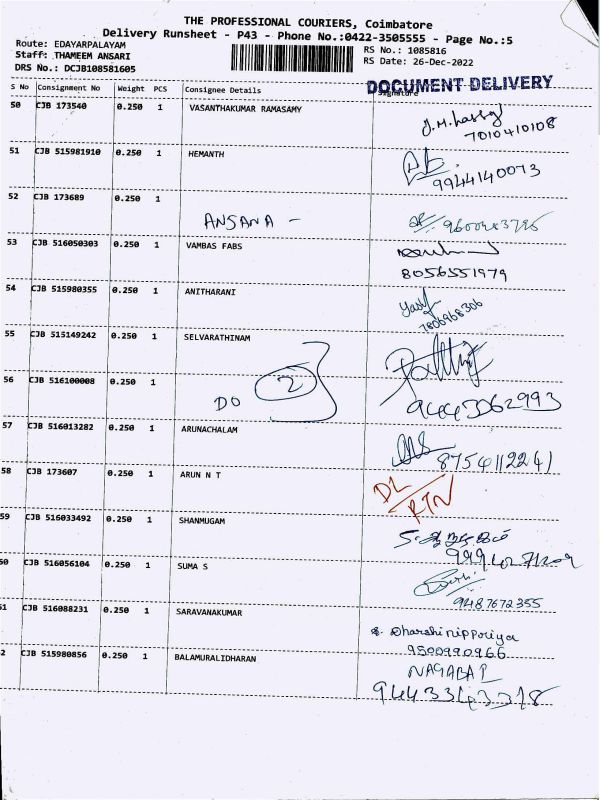 THE PROFESSIONAL COURIERS, Coimbatore
Delivery Runsheet - P43 - Phone No.:0422-3505555 - Page No.:5
Route: EDAYARPALAYAM
Staff: THAMEEM ANSARI
DRS No.: DCJB108581605
RS No.: 1085816
RS Date: 26-Dec-2022
DOCUMENT DELIVERY
S No Consignment No Weight PCS Consignee Details Signature
50 CJB 173540 0.250 1 VASANTHAKUMAR RAMASAMY
7010410108
51 CJB 515981910 0.250 1 HEMANTH
9944140073
52 CJB 173689 0.250 1
ANSANA -
53 CJB 516050303 0.250 1 VAMBAS FABS
8056551979
54 CJB 515980355 0.250 1 ANITHARANI
7806968306
55 CJB 515149242 0.250 1 SELVARATHINAM
56 CJB 516100008 0.250 1
DO 2
9443062993
57 CJB 516013282 0.250 1 ARUNACHALAM
8754112241
58 CJB 173607 0.250 1 ARUN N T
DL/RTN
59 CJB 516033492 0.250 1 SHANMUGAM
60 CJB 516056104 0.250 1 SUMA S
9487672355
61 CJB 516088231 0.250 1 SARAVANAKUMAR
9500990966
62 CJB 515980856 0.250 1 BALAMURALIDHARAN